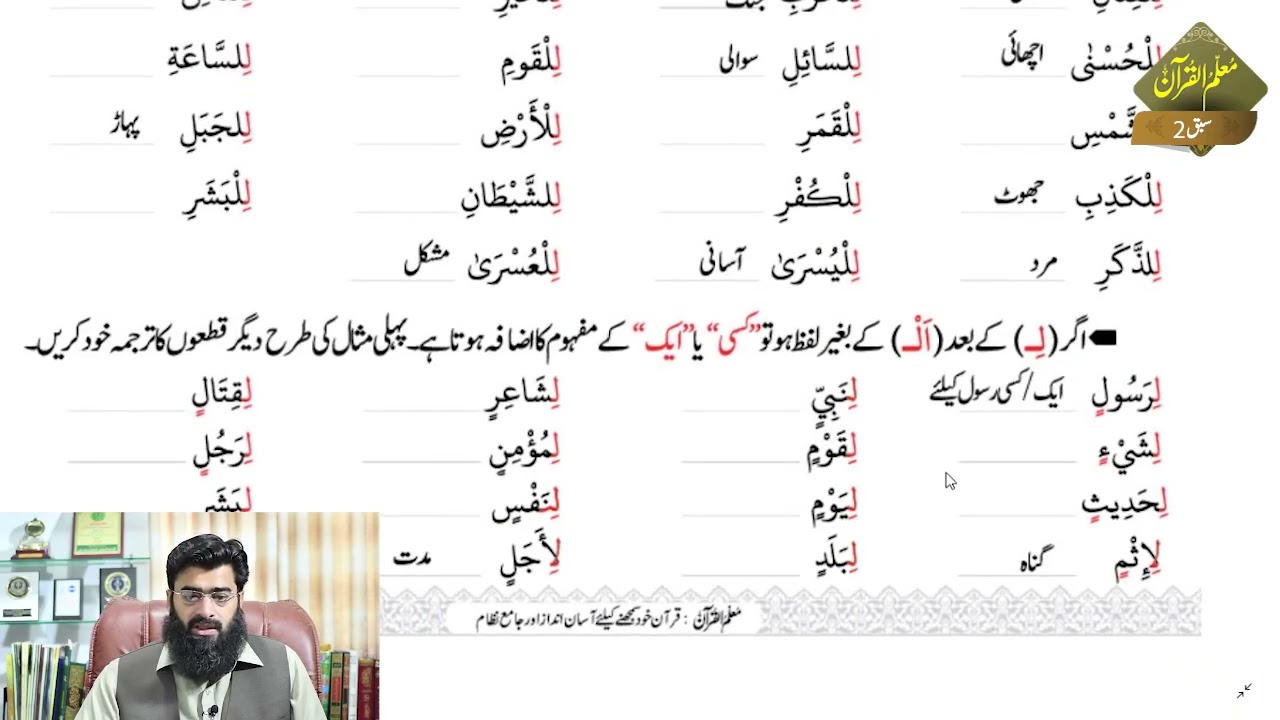 لِلْحُسْنٰی اچھائی لِلسَّائِلِ سوالی لِلْقَومِ لِلسَّاعَةِ
لِلْقَمَرِ لِلْأَرْضِ لِلجَبَلِ پہاڑ
لِلْكَذِبِ جھوٹ لِلْكُفْرِ لِلشَّيْطَانِ لِلْبَشَرِ
لِلذَّكَرِ مرد لِلْيُسْرَىٰ آسانی لِلْعُسْرَىٰ مشکل
اگر (لِـ) کے بعد (اَلْـ) کے بغیر لفظ ہو تو ”کسی“ یا ”ایک“ کے مفہوم کا اضافہ ہوتا ہے۔ پہلی مثال کی طرح دیگر قطعوں کا ترجمہ خود کریں۔
لِرَسُولٍ ایک/کسی رسول کیلئے لِنَبِيٍّ لِشَاعِرٍ لِقِتَالٍ
لِشَيْءٍ لِقَوْمٍ لِمُؤْمِنٍ لِرَجُلٍ
لِحَدِيثٍ لِيَوْمٍ لِنَفْسٍ لِبَشَرٍ
لِإِثْمٍ گناہ لِبَلَدٍ لِأَجَلٍ مدت
معلم القرآن : قرآن خود سمجھنے کیلئے آسان انداز اور جامع نظام
مُعلّمُ القُرآن
سبق 2